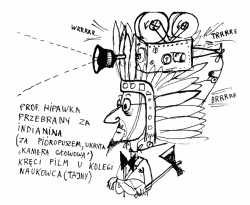 WRRRAR...
TRRRRE
BRRRRR
PROF. HIPAWKA
PRZEBRANY ZA
INDIANINA
(ZA PIÓROPUSZEM, UKRYTA
„KAMERA GŁOWOWA”)
KRĘCI FILM U KOLEGI
NAUKOWCA (TAJNY)